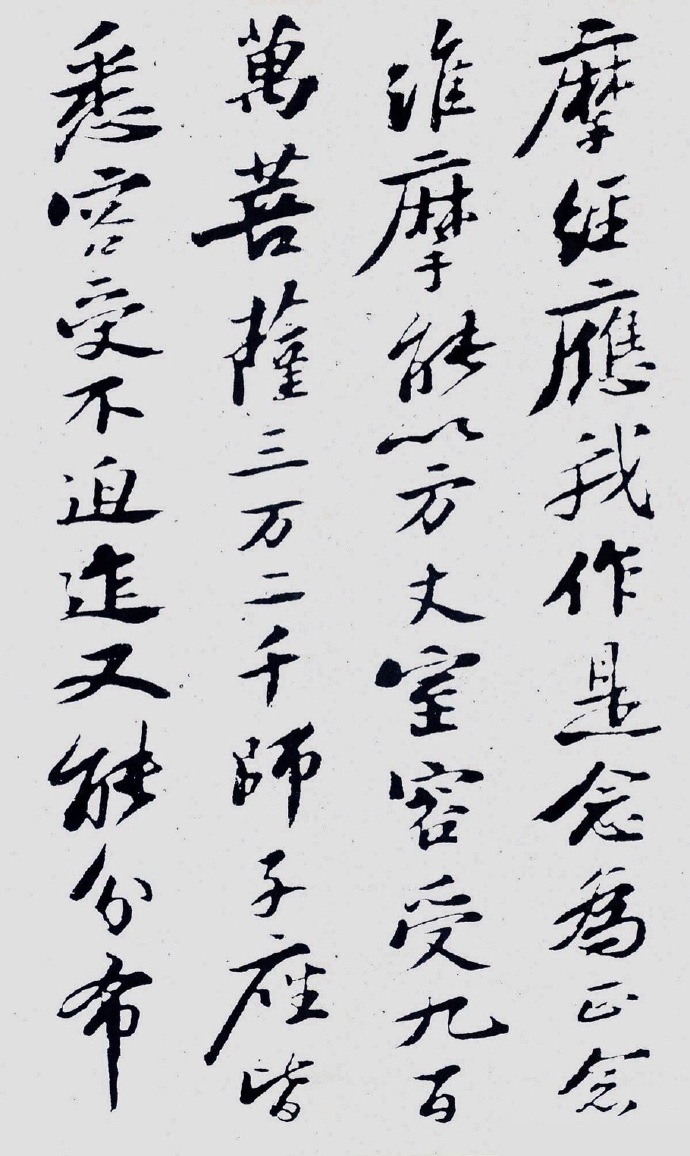 摩經應我作是念為正念
維摩能以方丈室容受九百
萬菩薩三万二千師子座皆
悉容受不迫迮又能分布